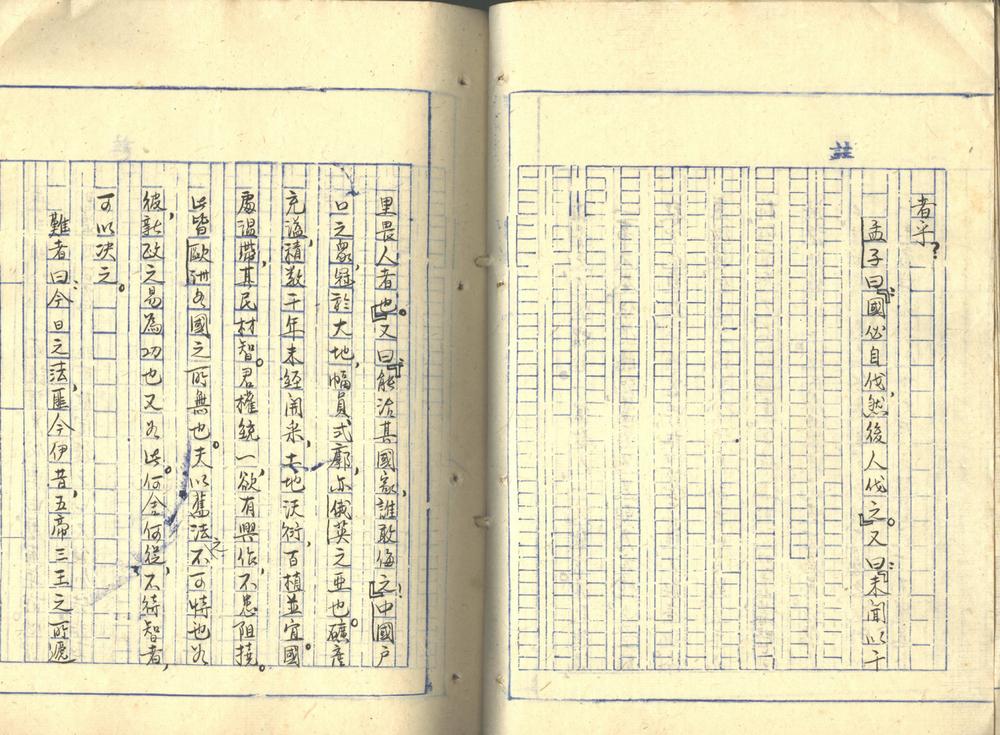 註
者乎?
孟子曰:『國必自伐,然後人伐之』。又曰:『未聞以千
里畏人者也』。又曰:『能治其國家,誰敢侮之』?中國戶
口之眾,冠於大地,幅員式廓,亦俄英之亞也。礦產
充溢,積數千年未經開采,土地沃衍,百植並宜。國
處溫帶,其民材智。君權統一,欲有興作,不患阻撓。
此皆歐洲各國之所無也。夫以舊法之不可恃也如
彼,新政之易為功也又如此。何舍何從,不待智者,
可以決之。
難者曰:今日之法,匪今伊昔,五帝三王之所遞